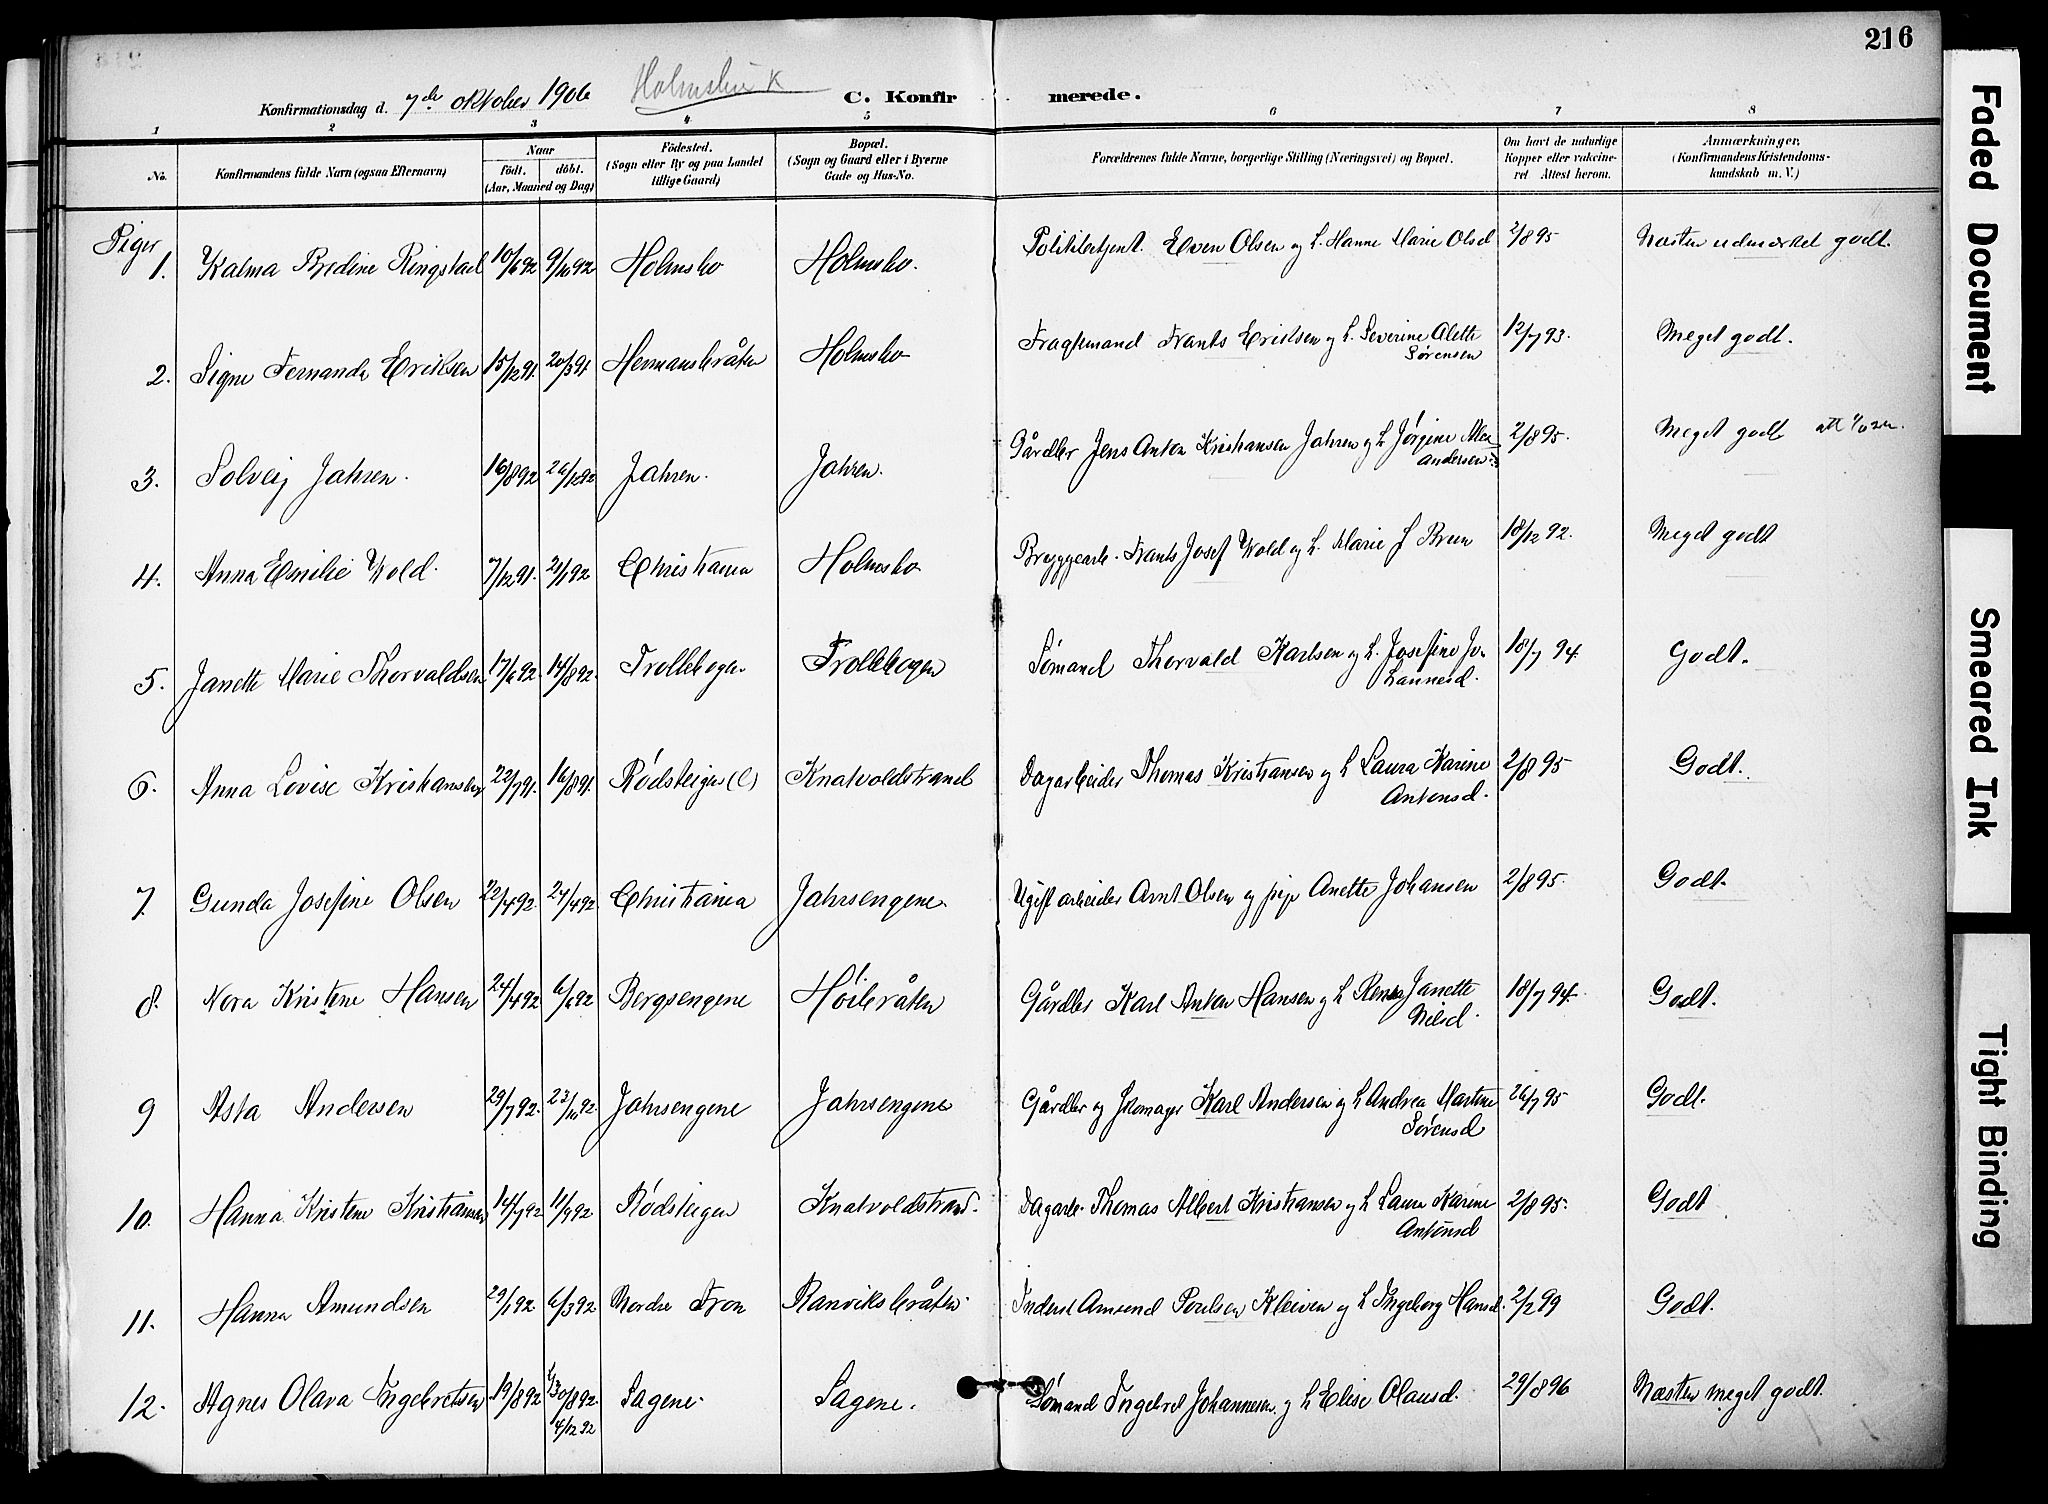 216
Konfirmationsdag d. 7de oktober 1906 Holmsbu K
C. Konfirmerede.
1 2 3 4 5 6 7 8
No.
Konfirmandens fulde Navn (ogsaa Efternavn)
Naar
födt. döbt.
(Aar, Maaned og Dag)
Födested.
(Sogn eller By og paa Landet
tillige Gaard)
Bopæl.
(Sogn og Gaard eller i Byerne
Gade og Hus-No.
Forældrenes fulde Navne, borgerlige Stilling (Næringsvei) og Bopæl.
Om havt de naturlige
Kopper eller vakcine-
ret Attest herom.
Anmærkninger.
(Konfirmandens Kristendoms-
kundskab m. V.)
Piger
1. Valma Bredine Ringstad 10/6 92 9/10 92 Holmsbo Holmsbo. Politibetjent. Even Olsen og h. Hanne Marie Olsd 2/8 95 Næsten udmærket godt.
2. Signe Fernanda Eriksen 15/12 91. 20/3 91. Hermansbråten Holmsbo Fragtmand Frants Eriksen og h. Severine Alette
Sørensen 12/7 93. Meget godt.
3. Solveig Jahren. 16/8 92 26/12 92 Jahren. Jahren. Gårdbr Jens Anton Kristiansen Jahren og h Jørgine
Andersen 2/8 95. Meget godt
4. Anna Emilie Wold. 7/12 91. 2/1 92 Christiania Holmsbo Bryggearb. Frants Josef Wold og h. Marie J Bruun 18/12 92. Meget godt
5. Janette Marie Thorvaldsen 17/6 92. 14/8 92. Trollebogen Trollebogen Sømand Thorvald Karlsen og h. Josefine Jo-
hannesd. 18/7 94. Godt.
6. Anna Lovise Kristiansen 22/7 91. 16/8 91. Rødsteigen Knatvoldstrand Dagarbeider Thomas Kristiansen og h Laura Karine
Antonsd. 2/8 95 Godt.
7. Gunda Josefine Olsen 22/4 92. 24/4 92. Christiania Jahrsengene. Ugift arbeider Arnt Olsen og pige Anette Johansen 2/8 95. Godt.
8. Nora Kristene Hansen 24/4 92 6/6 92 Bergsengene Høibråten Gårdbr Karl Anton Hansen og h Rensa Janette
Nilsd. 18/7 94. Godt.
9 Asta Andersen 29/7 92. 23/10 92. Jahrsengene Jahrsengene Gårdbr og skomager Karl Andersen og h Andrea Martene
Sørensd 26/7 95 Godt.
10. Hanna Kristene Kristiansen 14/7 92 11/9 92 Rødsteigen Knatvoldstrand. Dagarb. Thomas Albert Kristiansen og h Laura Karine
Antonsd 2/8 95. Godt
11. Hanna Amundsen 29/1 92. 6/3 92 Nordre Fron Ranviksbråten. Inderst Amund Poulsen Kleiven og h Ingeborg Hansd. 2/2 99 Godt.
12. Agnes Olava Ingebretsen 19/8 92 30/8 92
4/12 92 Sagene. Sagene. Sømand Ingebret Johannesen og h Elise Olausd. 29/8 96 Næsten meget godt.
Faded Document
Smeared Ink
Tight Binding